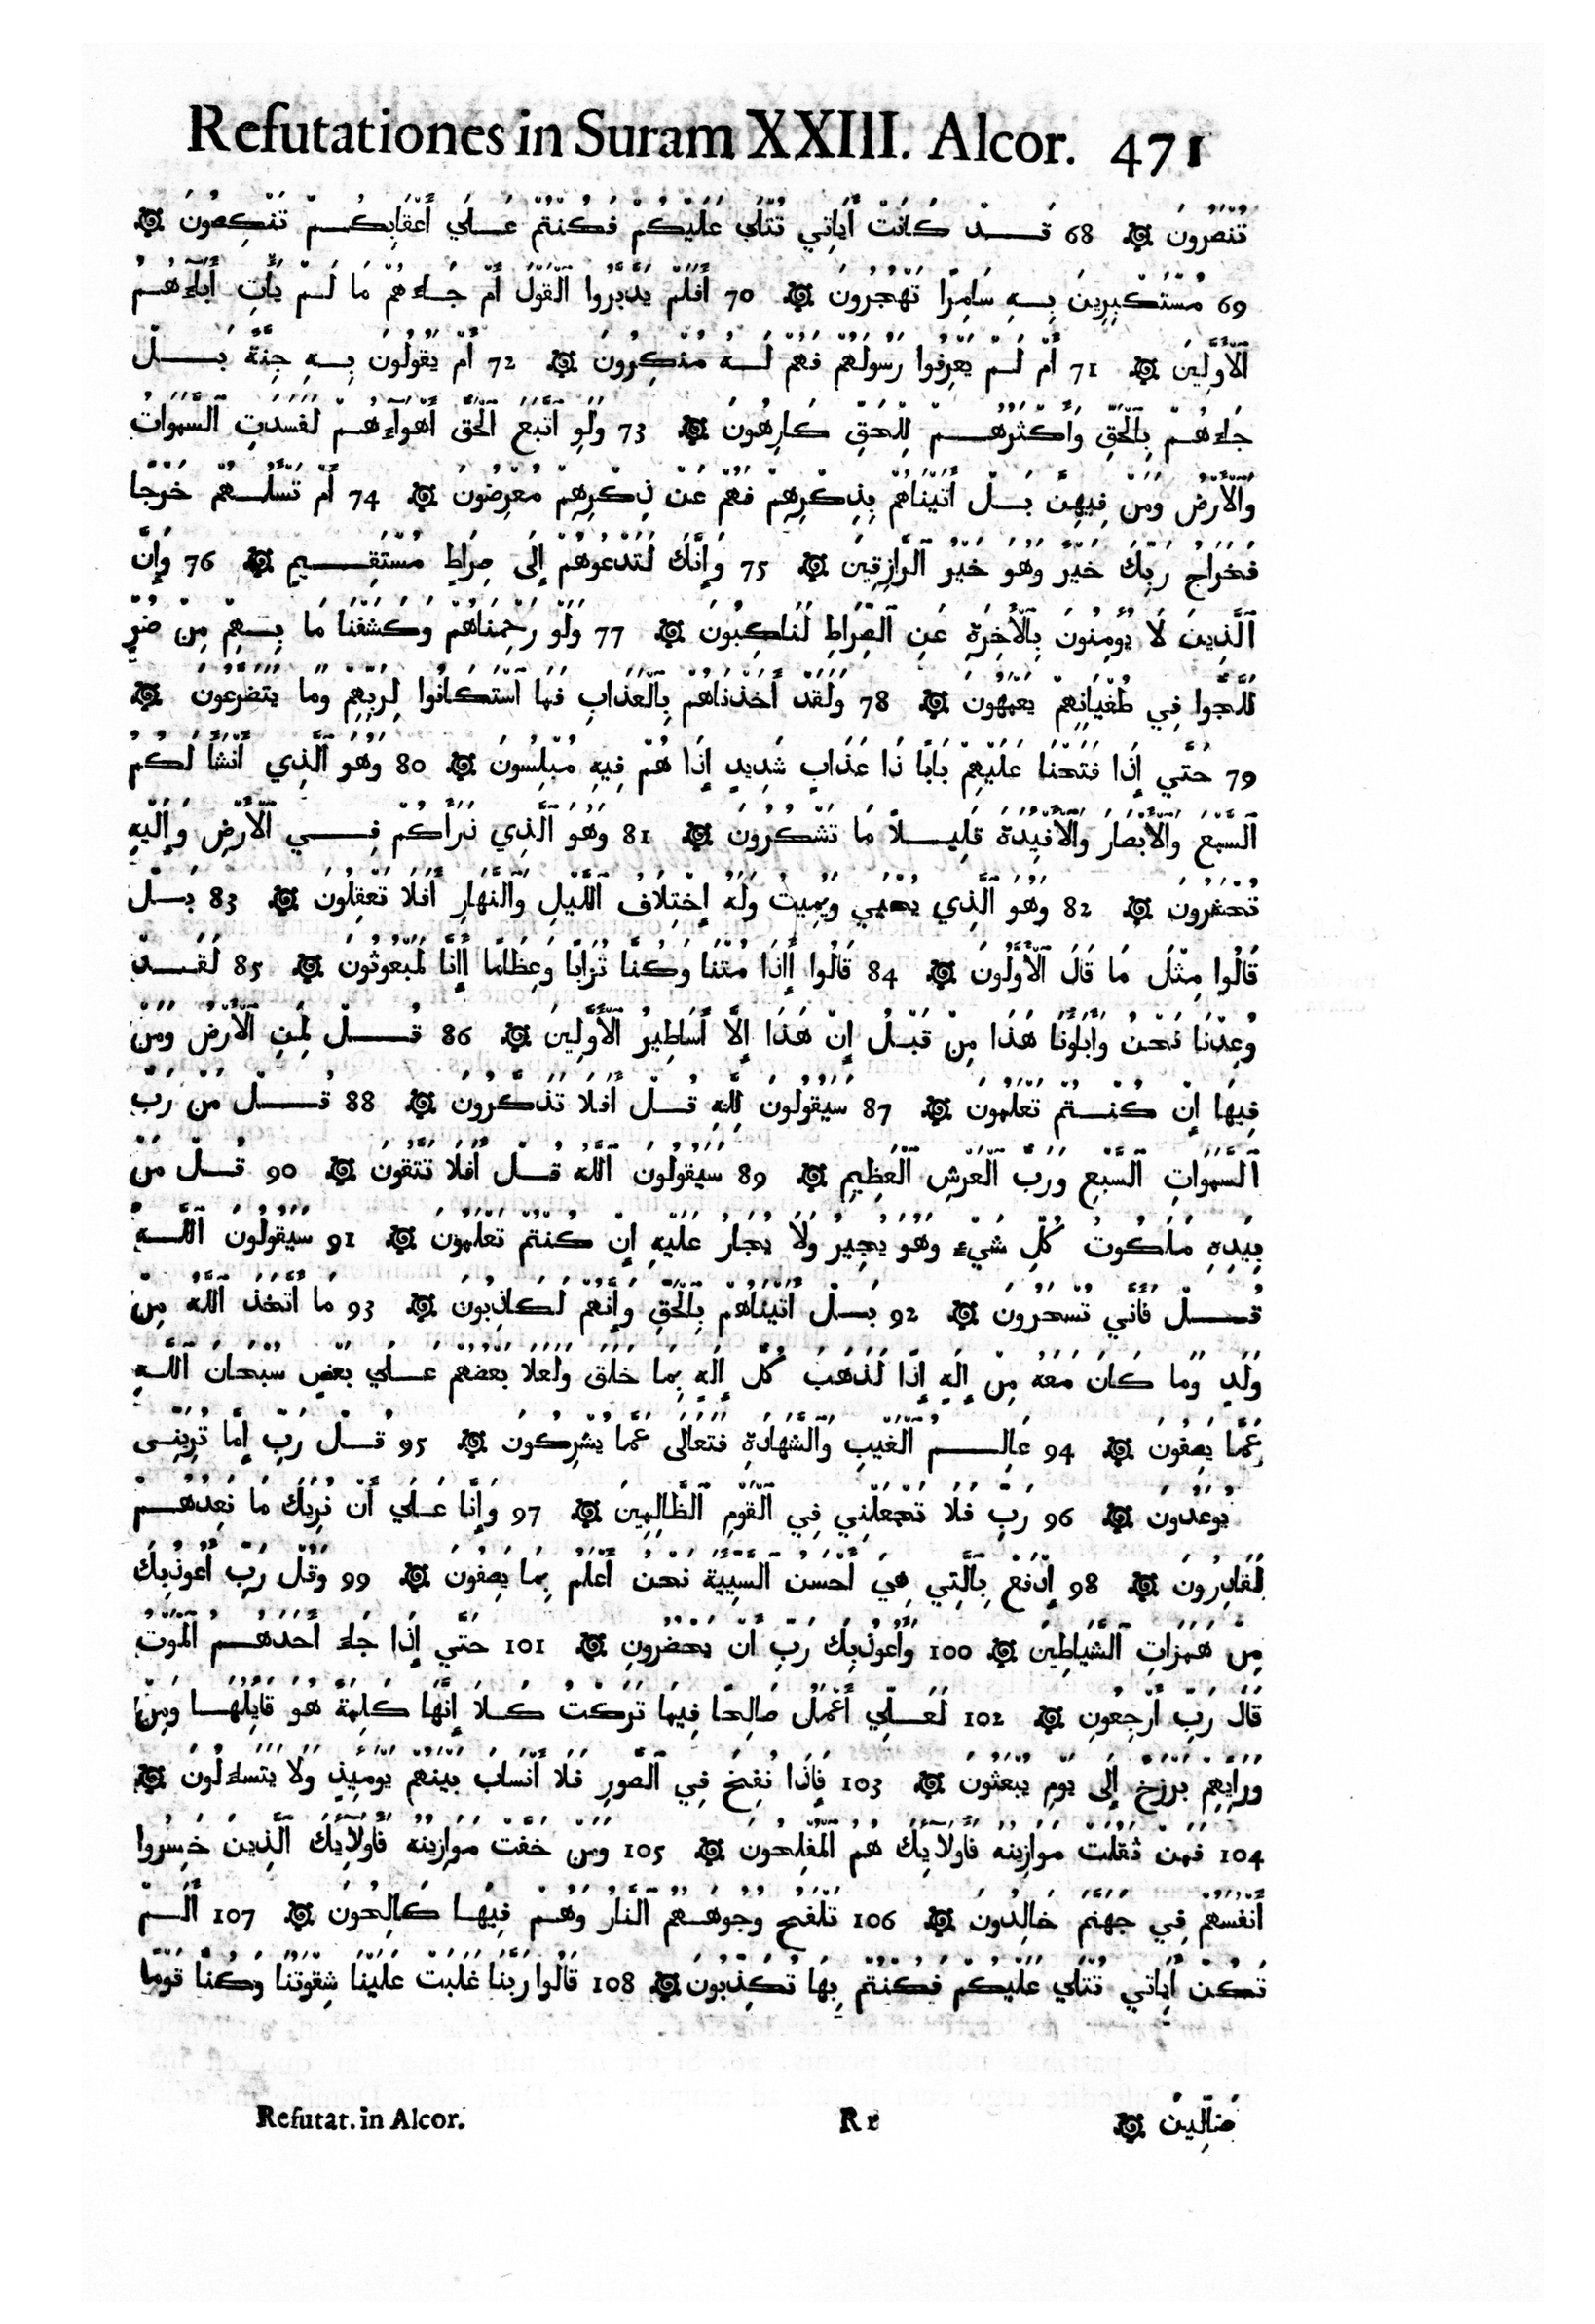 Refutationes in Suram XXIII. Alcor. 471
تُنْصَرُونَ ۞ 68 قَدْ كَانَتْ أَيَاتِي تُتْلَي عَلَيْكُمْ فَكُنْتُمْ عَلَي أَعْقَابِكُمْ تَنْكِصُونَ ۞
69 مُسْتَكْبِرِينَ بِهِ سَامِرًا تَهْجُرُونَ ۞ 70 أَفَلَمْ يَدَّبَّرُوا ٱلْقَوْلَ أَمْ جَاءَهُمْ مَا لَمْ يَأْتِ أَبَاءَهُمُ
ٱلْأَوَّلِينَ ۞ 71 أَمْ لَمْ يَعْرِفُوا رَسُولَهُمْ فَهُمْ لَهُ مُنْكِرُونَ ۞ 72 أَمْ يَقُولُونَ بِهِ جِنَّةٌ بَلْ
جَاءَهُمْ بِٱلْحَقِّ وَأَكْثَرُهُمْ لِلْحَقِّ كَارِهُونَ ۞ 73 وَلَوِ ٱتَّبَعَ ٱلْحَقُّ أَهْوَاءَهُمْ لَفَسَدَتِ ٱلسَّمَوَاتُ
وَٱلْأَرْضُ وَمَنْ فِيهِنَّ بَلْ أَتَيْنَاهُمْ بِذِكْرِهِمْ فَهُمْ عَنْ ذِكْرِهِمْ مُعْرِضُونَ ۞ 74 أَمْ تَسْأَلُهُمْ خَرْجًا
فَخَرَاجُ رَبِّكَ خَيْرٌ وَهُوَ خَيْرُ ٱلرَّازِقِينَ ۞ 75 وَإِنَّكَ لَتَدْعُوهُمْ إِلَى صِرَاطٍ مُسْتَقِيمٍ ۞ 76 وَإِنَّ
ٱلَّذِينَ لَا يُؤْمِنُونَ بِٱلْأَخِرَةِ عَنِ ٱلصِّرَاطِ لَنَاكِبُونَ ۞ 77 وَلَوْ رَحِمْنَاهُمْ وَكَشَفْنَا مَا بِهِمْ مِنْ ضُرٍّ
لَلَجُّوا فِي طُغْيَانِهِمْ يَعْمَهُونَ ۞ 78 وَلَقَدْ أَخَذْنَاهُمْ بِٱلْعَذَابِ فَمَا ٱسْتَكَانُوا لِرَبِّهِمْ وَمَا يَتَضَرَّعُونَ ۞
79 حَتَّي إِذَا فَتَحْنَا عَلَيْهِمْ بَابًا ذَا عَذَابٍ شَدِيدٍ إِذَا هُمْ فِيهِ مُبْلِسُونَ ۞ 80 وَهُوَ ٱلَّذِي أَنْشَأَ لَكُمُ
ٱلسَّمْعَ وَٱلْأَبْصَارَ وَٱلْأَفْيِدَةَ قَلِيلاً مَا تَشْكُرُونَ ۞ 81 وَهُوَ ٱلَّذِي ذَرَأَكُمْ فِي ٱلْأَرْضِ وَإِلَيْهِ
تُحْشَرُونَ ۞ 82 وَهُوَ ٱلَّذِي يُحْيِي وَيُمِيتُ وَلَهُ إِخْتِلَافُ ٱللَّيْلِ وَٱلنَّهَارِ أَفَلَا تَعْقِلُونَ ۞ 83 بَلْ
قَالُوا مِثْلَ مَا قَالَ ٱلْأَوَّلُونَ ۞ 84 قَالُوا أَإِذَا مِتْنَا وَكُنَّا تُرَابًا وَعِظَامًا أَإِنَّا لَمَبْعُوثُونَ ۞ 85 لَقَدْ
وُعِدْنَا نَحْنُ وَأَبَاوُنَا هَذَا مِنْ قَبْلُ إِنْ هَذَا إِلَّا أَسَاطِيرُ ٱلْأَوَّلِينَ ۞ 86 قُلْ لِمَنِ ٱلْأَرْضُ وَمَنْ
فِيهَا إِنْ كُنْتُمْ تَعْلَمُونَ ۞ 87 سَيَقُولُونَ لِلَّهِ قُلْ أَفَلَا تَذَكَّرُونَ ۞ 88 قُلْ مَنْ رَبُّ
ٱلسَّمَوَاتِ ٱلسَّبْعِ وَرَبُّ ٱلْعَرْشِ ٱلْعَظِيمِ ۞ 89 سَيَقُولُونَ ٱللَّهُ قُلْ أَفَلَا تَتَّقُونَ ۞ 90 قُلْ مَنْ
بِيَدِهِ مَلَكُوتُ كُلِّ شَيْءٍ وَهُوَ يُجِيرُ وَلَا يُجَارُ عَلَيْهِ إِنْ كُنْتُمْ تَعْلَمُونَ ۞ 91 سَيَقُولُونَ ٱللَّهُ
قُلْ فَأَنَّي تُسْحَرُونَ ۞ 92 بَلْ أَتَيْنَاهُمْ بِٱلْحَقِّ وَإِنَّهُمْ لَكَاذِبُونَ ۞ 93 مَا ٱتَّخَذَ ٱللَّهُ مِنْ
وَلَدٍ وَمَا كَانَ مَعَهُ مِنْ إِلَهٍ إِذًا لَذَهَبَ كُلُّ إِلَهٍ بِمَا خَلَقَ وَلَعَلَا بَعْضُهُمْ عَلَي بَعْضٍ سُبْحَانَ ٱللَّهِ
عَمَّا يَصِفُونَ ۞ 94 عَالِمُ ٱلْغَيْبِ وَٱلشَّهَادَةِ فَتَعَالَى عَمَّا يُشْرِكُونَ ۞ 95 قُلْ رَبِّ إِمَّا تُرِيَنِّى
يُوعَدُونَ ۞ 96 رَبِّ فَلَا تَجْعَلْنِي فِي ٱلْقَوْمِ ٱلظَّالِمِينَ ۞ 97 وَإِنَّا عَلَي أَنْ نُرِيَكَ مَا نَعِدُهُمْ
لَقَادِرُونَ ۞ 98 إِدْفَعْ بِٱلَّتِي هِيَ أَحْسَنُ ٱلسَّيِّيَةَ نَحْنُ أَعْلَمُ بِمَا يَصِفُونَ ۞ 99 وَقُلْ رَبِّ أَعُوذُبِكَ
مِنْ هَمَزَاتِ ٱلشَّيَاطِينَ ۞ 100 وَأَعُوذُبِكَ رَبِّ أَنْ يَحْضُرُونِ ۞ 101 حَتَّي إِذَا جَاءَ أَحَدَهُمُ ٱلْمَوْتُ
قَالَ رَبِّ أَرْجِعُونِ ۞ 102 لَعَلِّي أَعْمَلُ صَالِحًا فِيمَا تَرَكْتُ كَلاَ إِنَّهَا كَلِمَةٌ هُوَ قَايِلُهَا وَمِنْ
وَرَايِهِمْ بَرْزَخٌ إِلَى يَوْمِ يُبْعَثُونَ ۞ 103 فَإِذَا نُفِخَ فِي ٱلصُّورِ فَلَا أَنْسَابَ بَيْنَهُمْ يَوْمَيِذٍ وَلَا يَتَسَاءَلُونَ ۞
104 فَمَنْ ثَقُلَتْ مَوَازِينُهُ فَأُولَايِكَ هُمُ ٱلْمُفْلِحُونَ ۞ 105 وَمَنْ خَفَّتْ مَوَازِينُهُ فَأُولَايِكَ ٱلَّذِينَ خَسِرُوا
أَنْفُسَهُمْ فِي جَهَنَّمَ خَالِدُونَ ۞ 106 تَلْفَحُ وُجُوهَهُمُ ٱلنَّارُ وَهُمْ فِيهَا كَالِحُونَ ۞ 107 أَلَمْ
تَكُنْ أَيَاتِي تُتْلَي عَلَيْكُمْ فَكُنْتُمْ بِهَا تُكَذِّبُونَ ۞ 108 قَالُوا رَبَّنَا غَلَبَتْ عَلَيْنَا شِقْوَتُنَا وَكُنَّا قَوْمًا
Refutat. in Alcor. R r ضَالِّينَ ۞